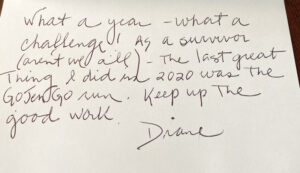 What a year - what a
challenge! As a survivor
(arent we all) - The last great
Thing I did in 2020 was The
GoJenGo run. Keep up The
good work.
Diane